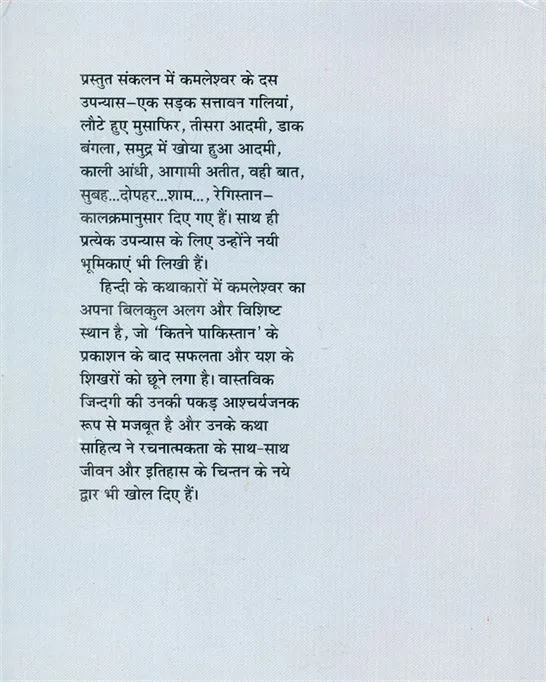 प्रस्तुत संकलन में कमलेश्वर के दस
उपन्यास–एक सड़क सत्तावन गलियां,
लौटे हुए मुसाफिर, तीसरा आदमी, डाक
बंगला, समुद्र में खोया हुआ आदमी,
काली आंधी, आगामी अतीत, वही बात,
सुबह...दोपहर...शाम..., रेगिस्तान–
कालक्रमानुसार दिए गए हैं। साथ ही
प्रत्येक उपन्यास के लिए उन्होंने नयी
भूमिकाएं भी लिखी हैं।
हिन्दी के कथाकारों में कमलेश्वर का
अपना बिलकुल अलग और विशिष्ट
स्थान है, जो ‘कितने पाकिस्तान’ के
प्रकाशन के बाद सफलता और यश के
शिखरों को छूने लगा है। वास्तविक
जिन्दगी की उनकी पकड़ आश्चर्यजनक
रूप से मजबूत है और उनके कथा
साहित्य ने रचनात्मकता के साथ-साथ
जीवन और इतिहास के चिन्तन के नये
द्वार भी खोल दिए हैं।